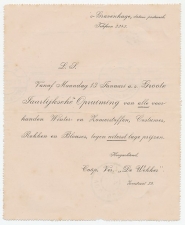 's-Gravenhage, datum postmerk.
Telefoon
L. S.
Vanaf Maandag 13 Januari a.s. Groote
Jaarlijksche Opruiming van alle voor-
handen Winter en Zomerstoffen, Costumes,
Rokken en Blouses, tegen uiterst lage prijzen.
Hoogachtend,
Coöp. Ver. "De Wekker"